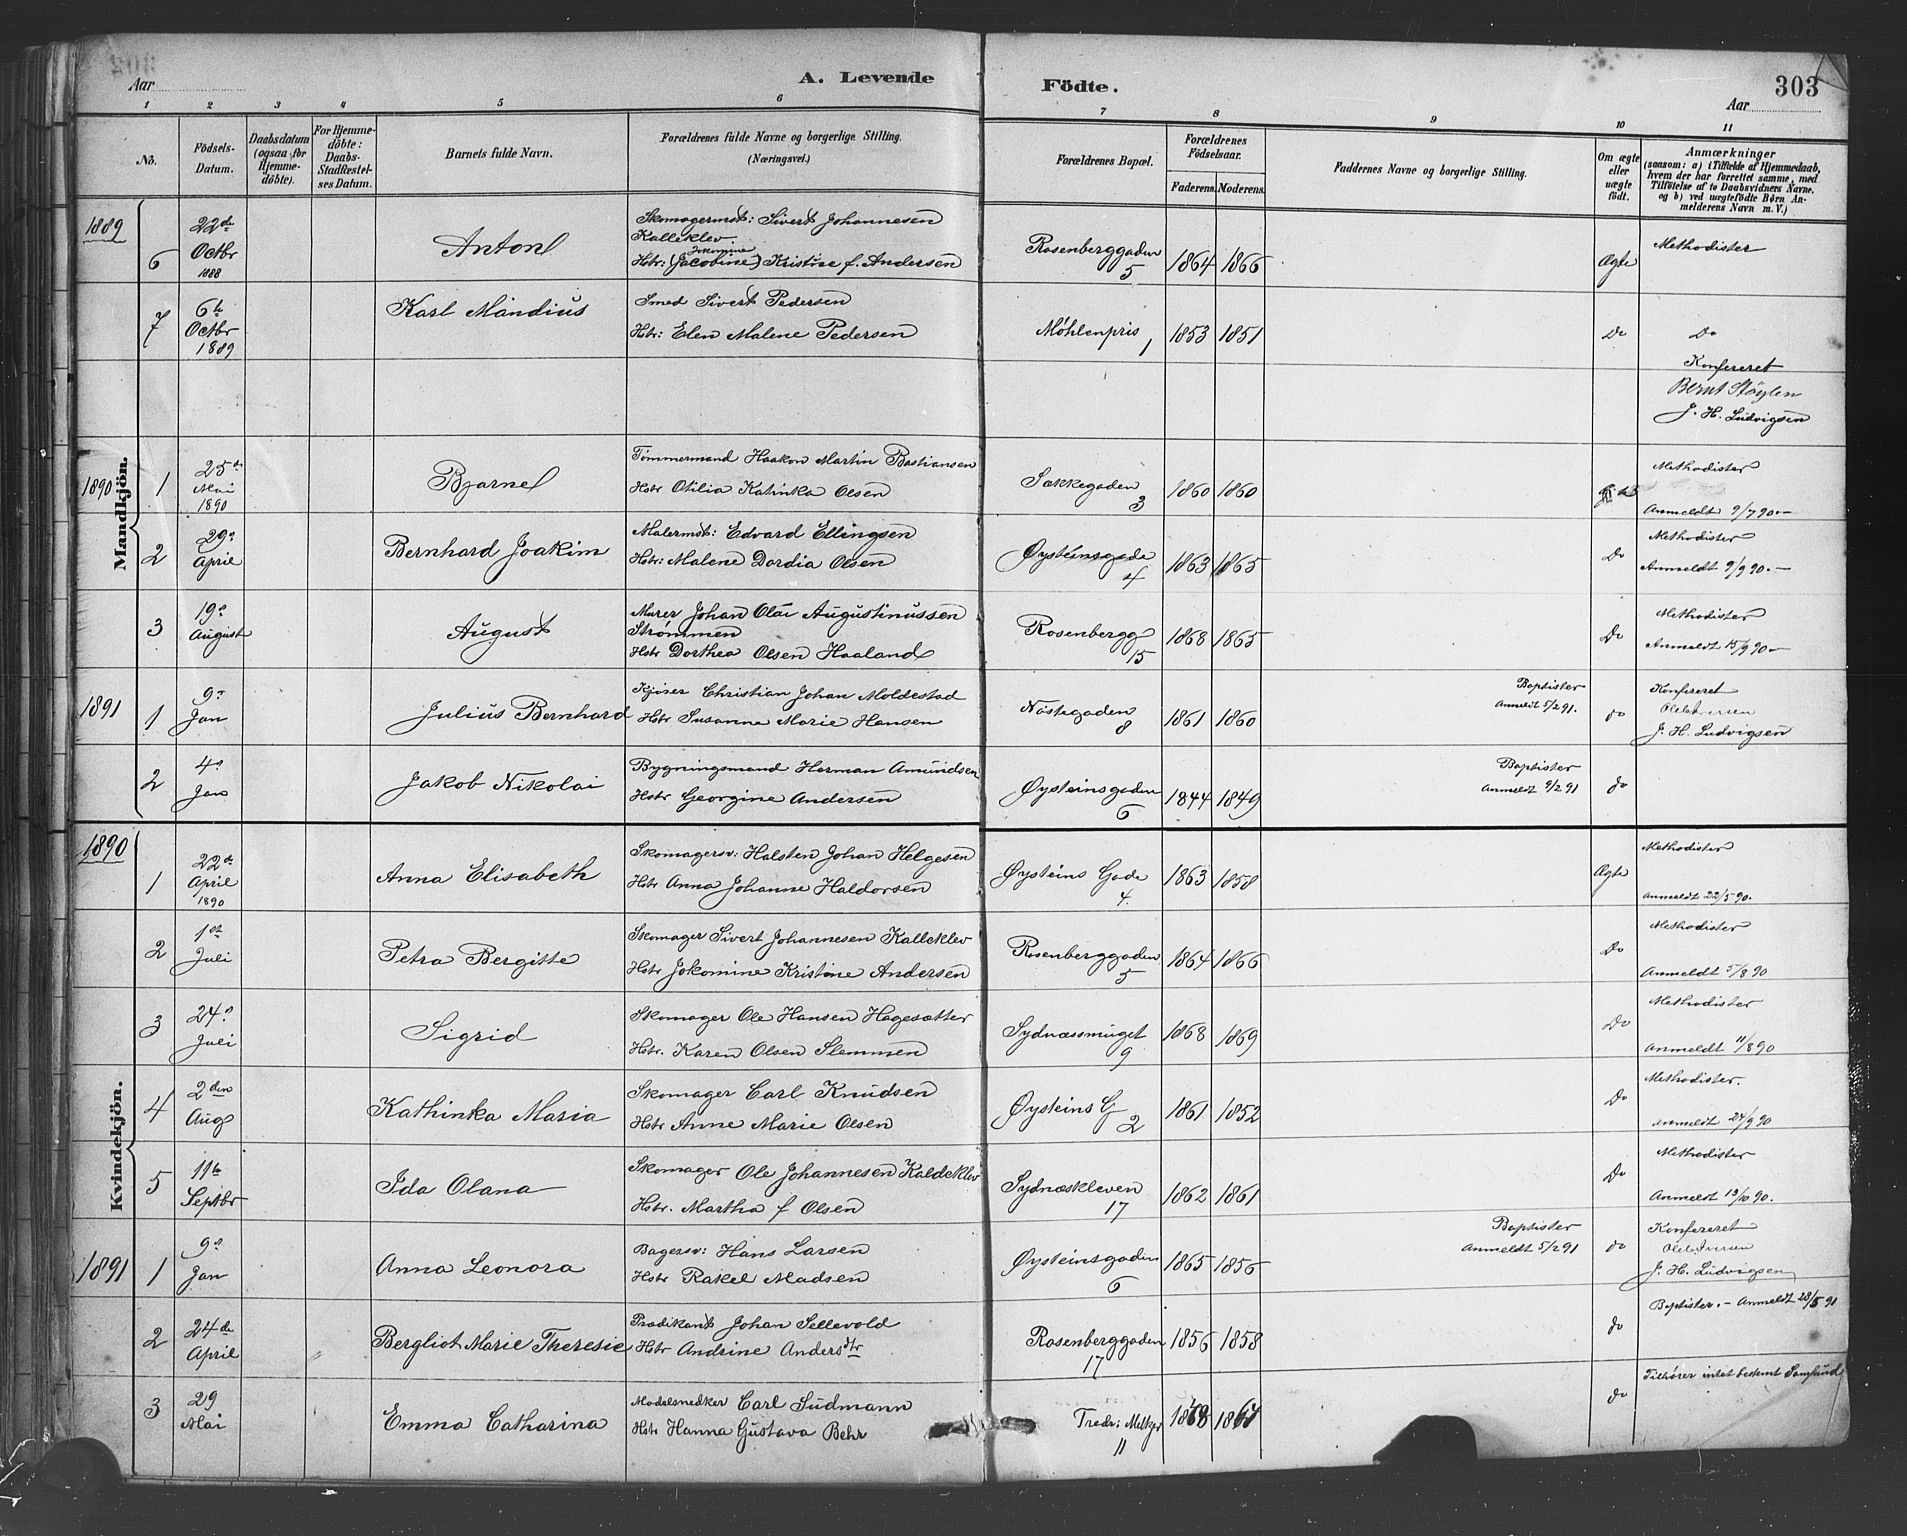 303
Aar
A. Levende Födte.
Aar
1 2 3 4 5 6 7 8 9 10 11
No.
Födsels-Datum.
Daabsdatum (ogsaa for Hjemme-döbte).
For Hjemme-döbte: Daabs-Stadfæstel-ses Datum.
Barnets fulde Navn.
Forældrenes fulde Navne og borgerlige Stilling.
(Næringsvei.)
Forældrenes Bopæl.
Forældrenes Födselsaar.
Faderens. Moderens.
Faddernes Navne og borgerlige Stilling.
Om ægte eller uægte födt.
Anmærkninger
(saasom: a) i Tilfælde af Hjemmedaab,
hvem der har forrettet samme, med
Tilföielse af to Daabsvidners Navne.
og b) ved uægtefödte Börn An-
melderens Navn m. V.)
Mandkjön.
1889
6 22de Octbr 1888 Anton
Skomagermst: Sivert Johannesen
Kalleklev
Jokomine
Hstr: (Jacobine) Kristine f. Andersen
Rosenberggaden 5 1864 1866 Ægte Methodister
7 6te Octbr 1889 Karl Mandius
Smed Sivert Pedersen
Hstr: Elen Malene Pedersen
Møhlenpris 1 1853 1851 Do Do
Konfereret
Bernt Støylen
J. H. Ludvigsen
1890 1 25de Mai 1890 Bjarne
Tømmermand Haakon Martin Bastiansen
Hstr Otilia Katinka Olsen
Sækkegaden 3 1860 1860
Methodister
Anmeldt 9/7 90.
2 29de April Bernhard Joakim
Malermst: Edvard Ellingsen
Hstr: Malene Dordia Olsen
Øysteinsgade 4 1863 1865 Do
Methodister
Anmeldt 9/9 90.
3 19de August August
Murer Johan Olai Augustinussen
Strømmen
Hstr Dorthea Olsen Haaland
Rosenbergg 15 1868 1865 Do
Methodister
Anmeldt 15/9 90
1891 1 9de Jan Julius Bernhard
Kjører Christian Johan Moldestad
Hstr Susanne Marie Hansen
Nøstegaden 8 1861 1860
Baptister
Anmeldt 5/2 91.
do
Konfereret
Ole Iversen
J. H. Ludvigsen
2 4de Jan Jakob Nikolai
Bygningsmand Herman Amundsen
Hstr Georgine Andersen
Øysteinsgaden 6 1844 1849
Baptister
Anmeldt 9/2 91
do
Kvindekjön.
1890
1 22de April 1890 Anna Elisabeth
Skomagersv: Halsten Johan Helgesen
Hstr Anna Johanne Haldorsen
Øysteins Gade 4. 1863 1858 Ægte
Methodister
Anmeldt 22/5 90.
2 1st Juli Petra Bergitte
Skomager Sivert Johannesen Kalleklev
Hstr Jokomine Kristine Andersen
Rosenberggaden 5 1864 1866 Do
Methodister
Anmeldt 5/8 90
3 24de Juli Sigrid
Skomager Ole Hansen Hagesætter
Hstr. Karen Olsen Slemmen
Sydnæssmuget 9 1868 1869 Do
Methodister
Anmeldt 11/8 90
4 2den Aug Kathinka Maria
Skomager Carl Knudsen
Hstr Anne Marie Olsen
Øysteins G 2 1861 1852 Do
Methodister.
Anmeldt 24/9 90
5 11te Septbr Ida Olana
Skomager Ole Johannesen Kaldeklev
Hstr. Martha f Olsen
Sydnæskleven 17 1862 1861 Do
Methodister
Anmeldt 13/10 90.
1891 1 9de Jan Anna Leonora
Bagersv: Hans Larsen
Hstr Rakel Madsen
Øysteinsgaden 6 1865 1856
Baptister
Anmeldt 5/2 91
do
Konfereret
Ole Iversen
J. H. Ludvigsen
2 24de April Bergliot Marie Theresie
Prædikant Johan Sellevold
Hstr Andrine Andersdtr
Rosenberggaden 17 1856 1858 do
Baptister. - Anmeldt 28/5 91
3 29 Mai Emma Catharina
Modelsnedker Carl Sudmann
Hstr Hanna Gustava Behr
Fredr: Meltzer 11 do
Tilhører intet bestemt Samfund